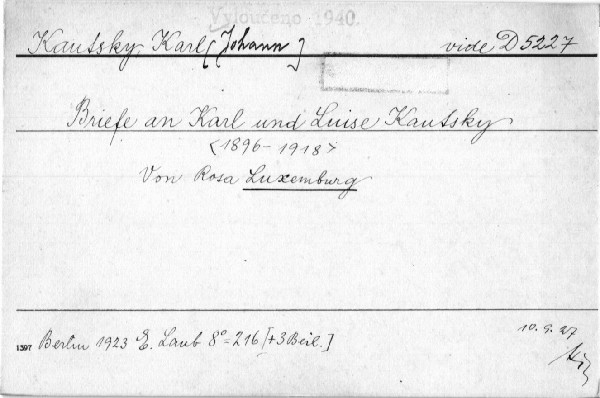 Vyloučeno 1940.
Kautsky, Karl [Johann] vide D 5227
Briefe an Karl und Luise Kautsky
<1896-1918>
Von Rosa Luxemburg
1397 Berlin 1923 E. Laub 8°-216 [+3 Beil.]
10.9.27